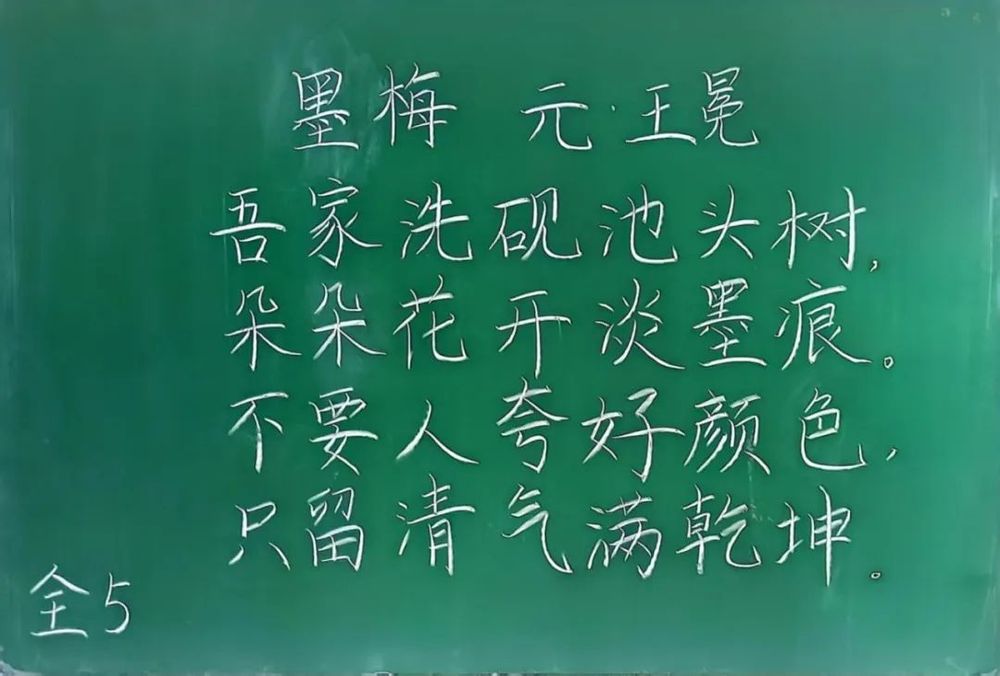 墨梅 元·王冕
吾家洗砚池头树,
朵朵花开淡墨痕。
不要人夸好颜色,
只留清气满乾坤。
全5